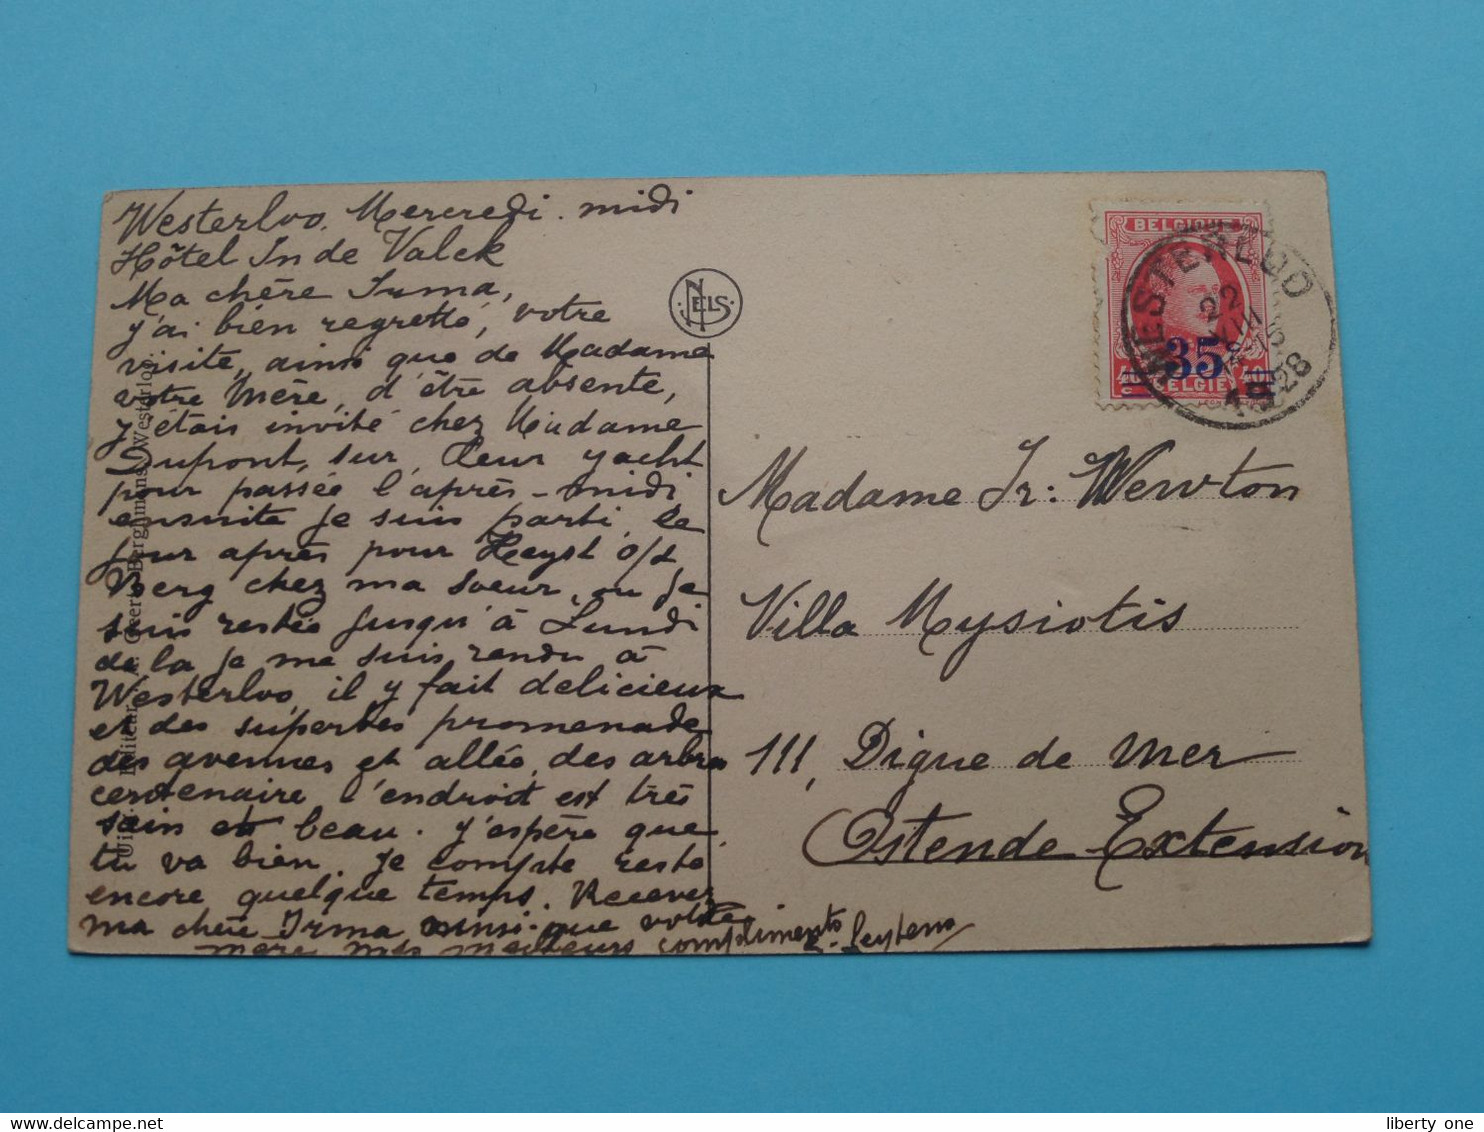 Westerloo, Mercredi. midi
Hôtel In de Valck
Ma chère Irma,
j'ai bien regretté, votre
visite, ainsi que de Madame
votre mère, d'être absente,
j'étais invité chez Madame
Dupont, sur, leur yacht
pour passée l'après-midi
ensuite je suis parti, le
jour après pour Heyst o/d
Berg chez ma soeur, ou je
suis restée jusqu'à Lundi
de la je me suis rendu à
Westerloo, il y fait delicieux
et des superbes promenade
des avenues et allée, des arbres
centenaire l'endroit est très
sain et beau. J'espère que
tu va bien. Je compte resté
encore quelque temps. Recever
ma chère Irma ainsi que votre
mère mes meilleurs compliments
Leytens
NELS
Bergmans, Westerloo.
BELGIQUE
35
BELGIË
WESTERLOO
22
VIII
1928
Madame Jr: Wewton
Villa Mysiotis
111, Digue de mer
Ostende Extension
liberty one